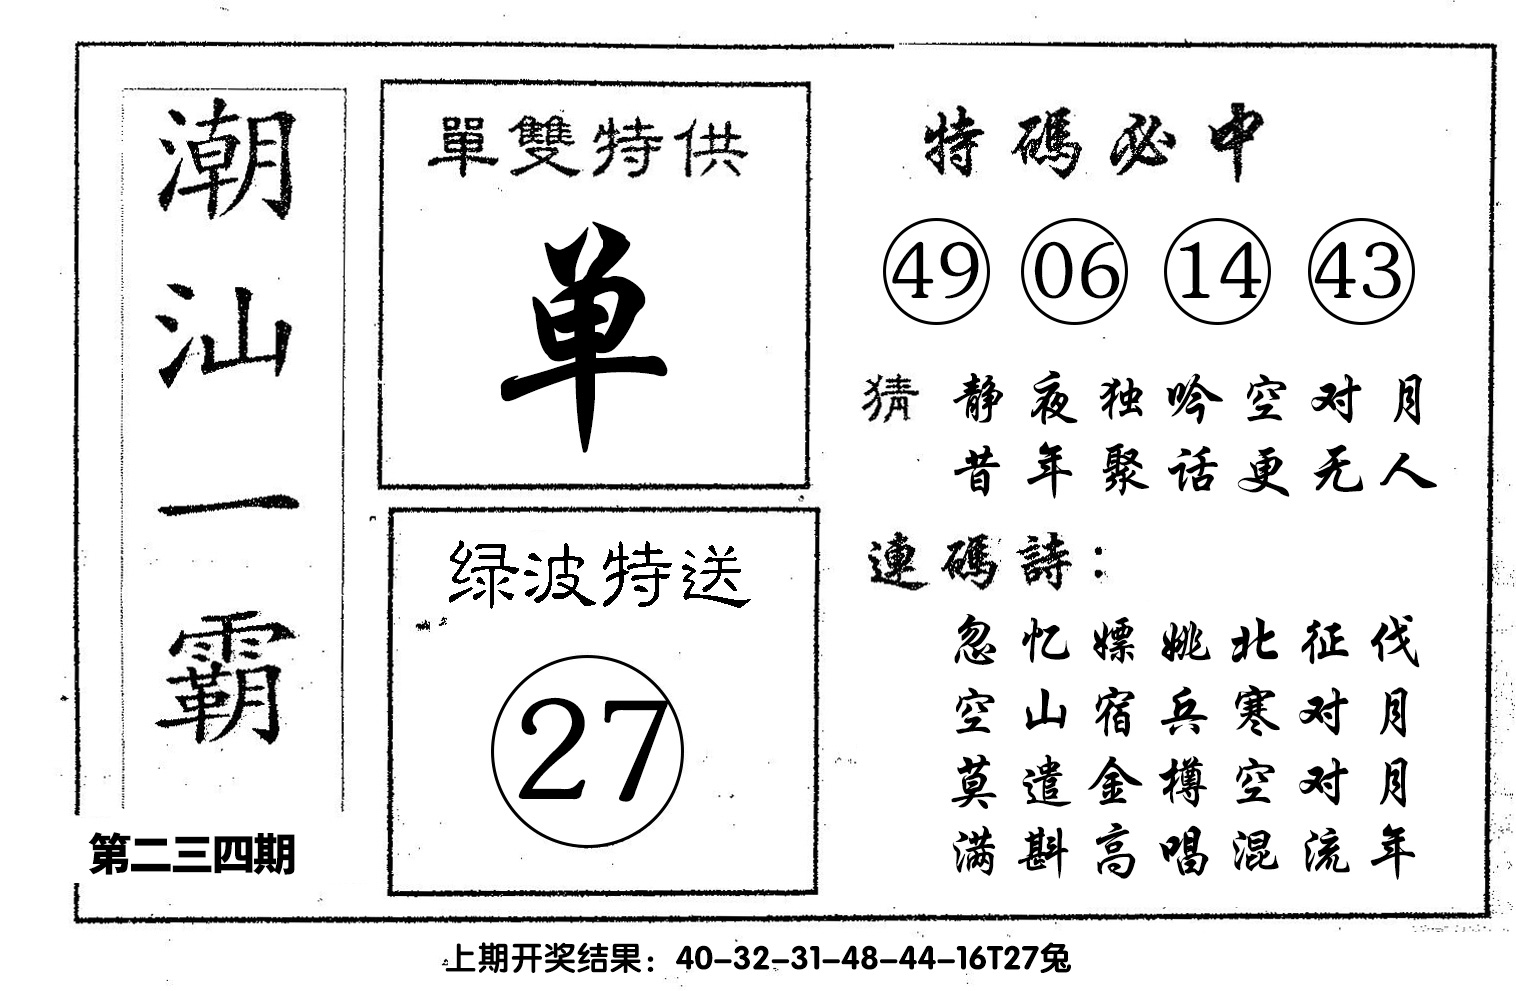 潮汕一霸
第二三四期
單雙特供
单
绿波特送
27
特碼必中
49 06 14 43
猜 静夜独吟空对月
昔年聚话更无人
連碼詩：
忽忆嫖姚北征伐
空山宿兵寒对月
莫遣金樽空对月
满斟高唱混流年
上期开奖结果：40-32-31-48-44-16T27兔